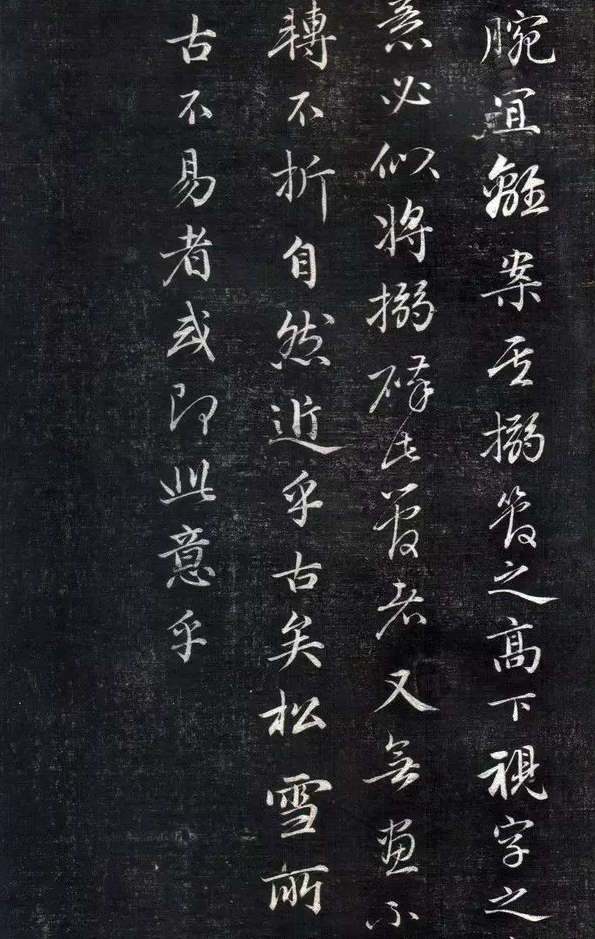 腕宜離案其搦管之高下視字之
意必似將搦碎此管者又無畫不
轉不折自然近乎古矣松雪所
古不易者或即此意乎